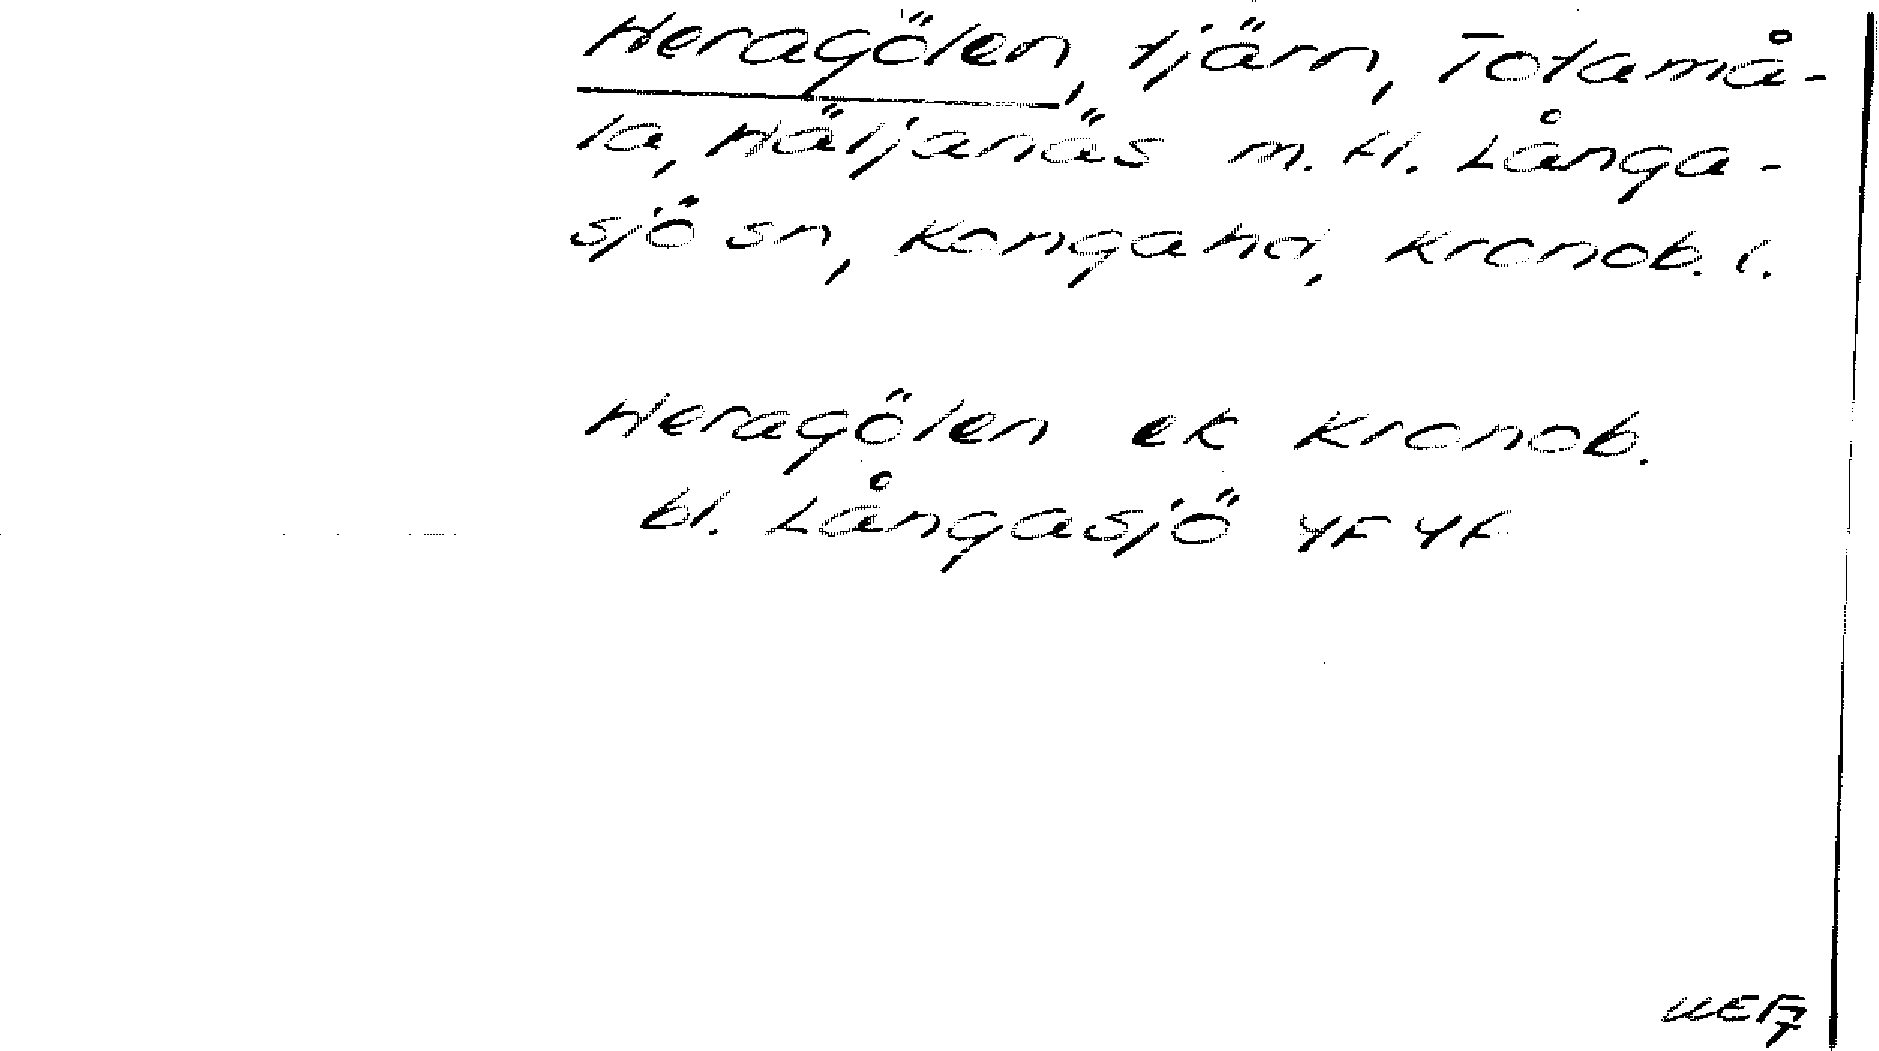 Heragölen, tjärn, Totamå-
la, Häljanäs m.fl. Långa-
sjö sn, Konga hd, Kronob. l.
Heragölen ek Kronob.
bl. Långasjö 4F 4f